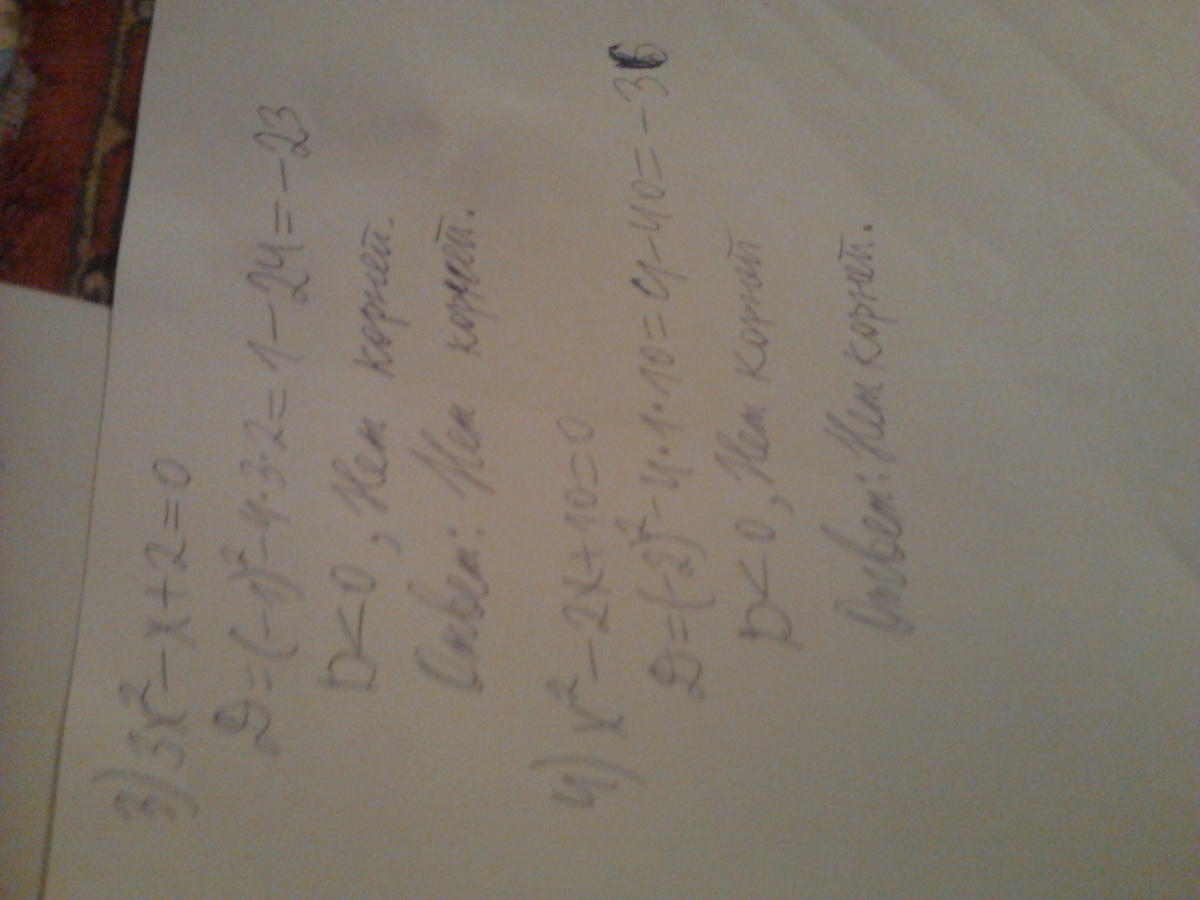 3) 3x² - x + 2 = 0
D = (-1)² - 4·3·2 = 1 - 24 = -23
D < 0, Нет корней.
Ответ: Нет корней.
4) x² - 2x + 10 = 0
D = (-2)² - 4·1·10 = 4 - 40 = -36
D < 0, Нет корней
Ответ: Нет корней.